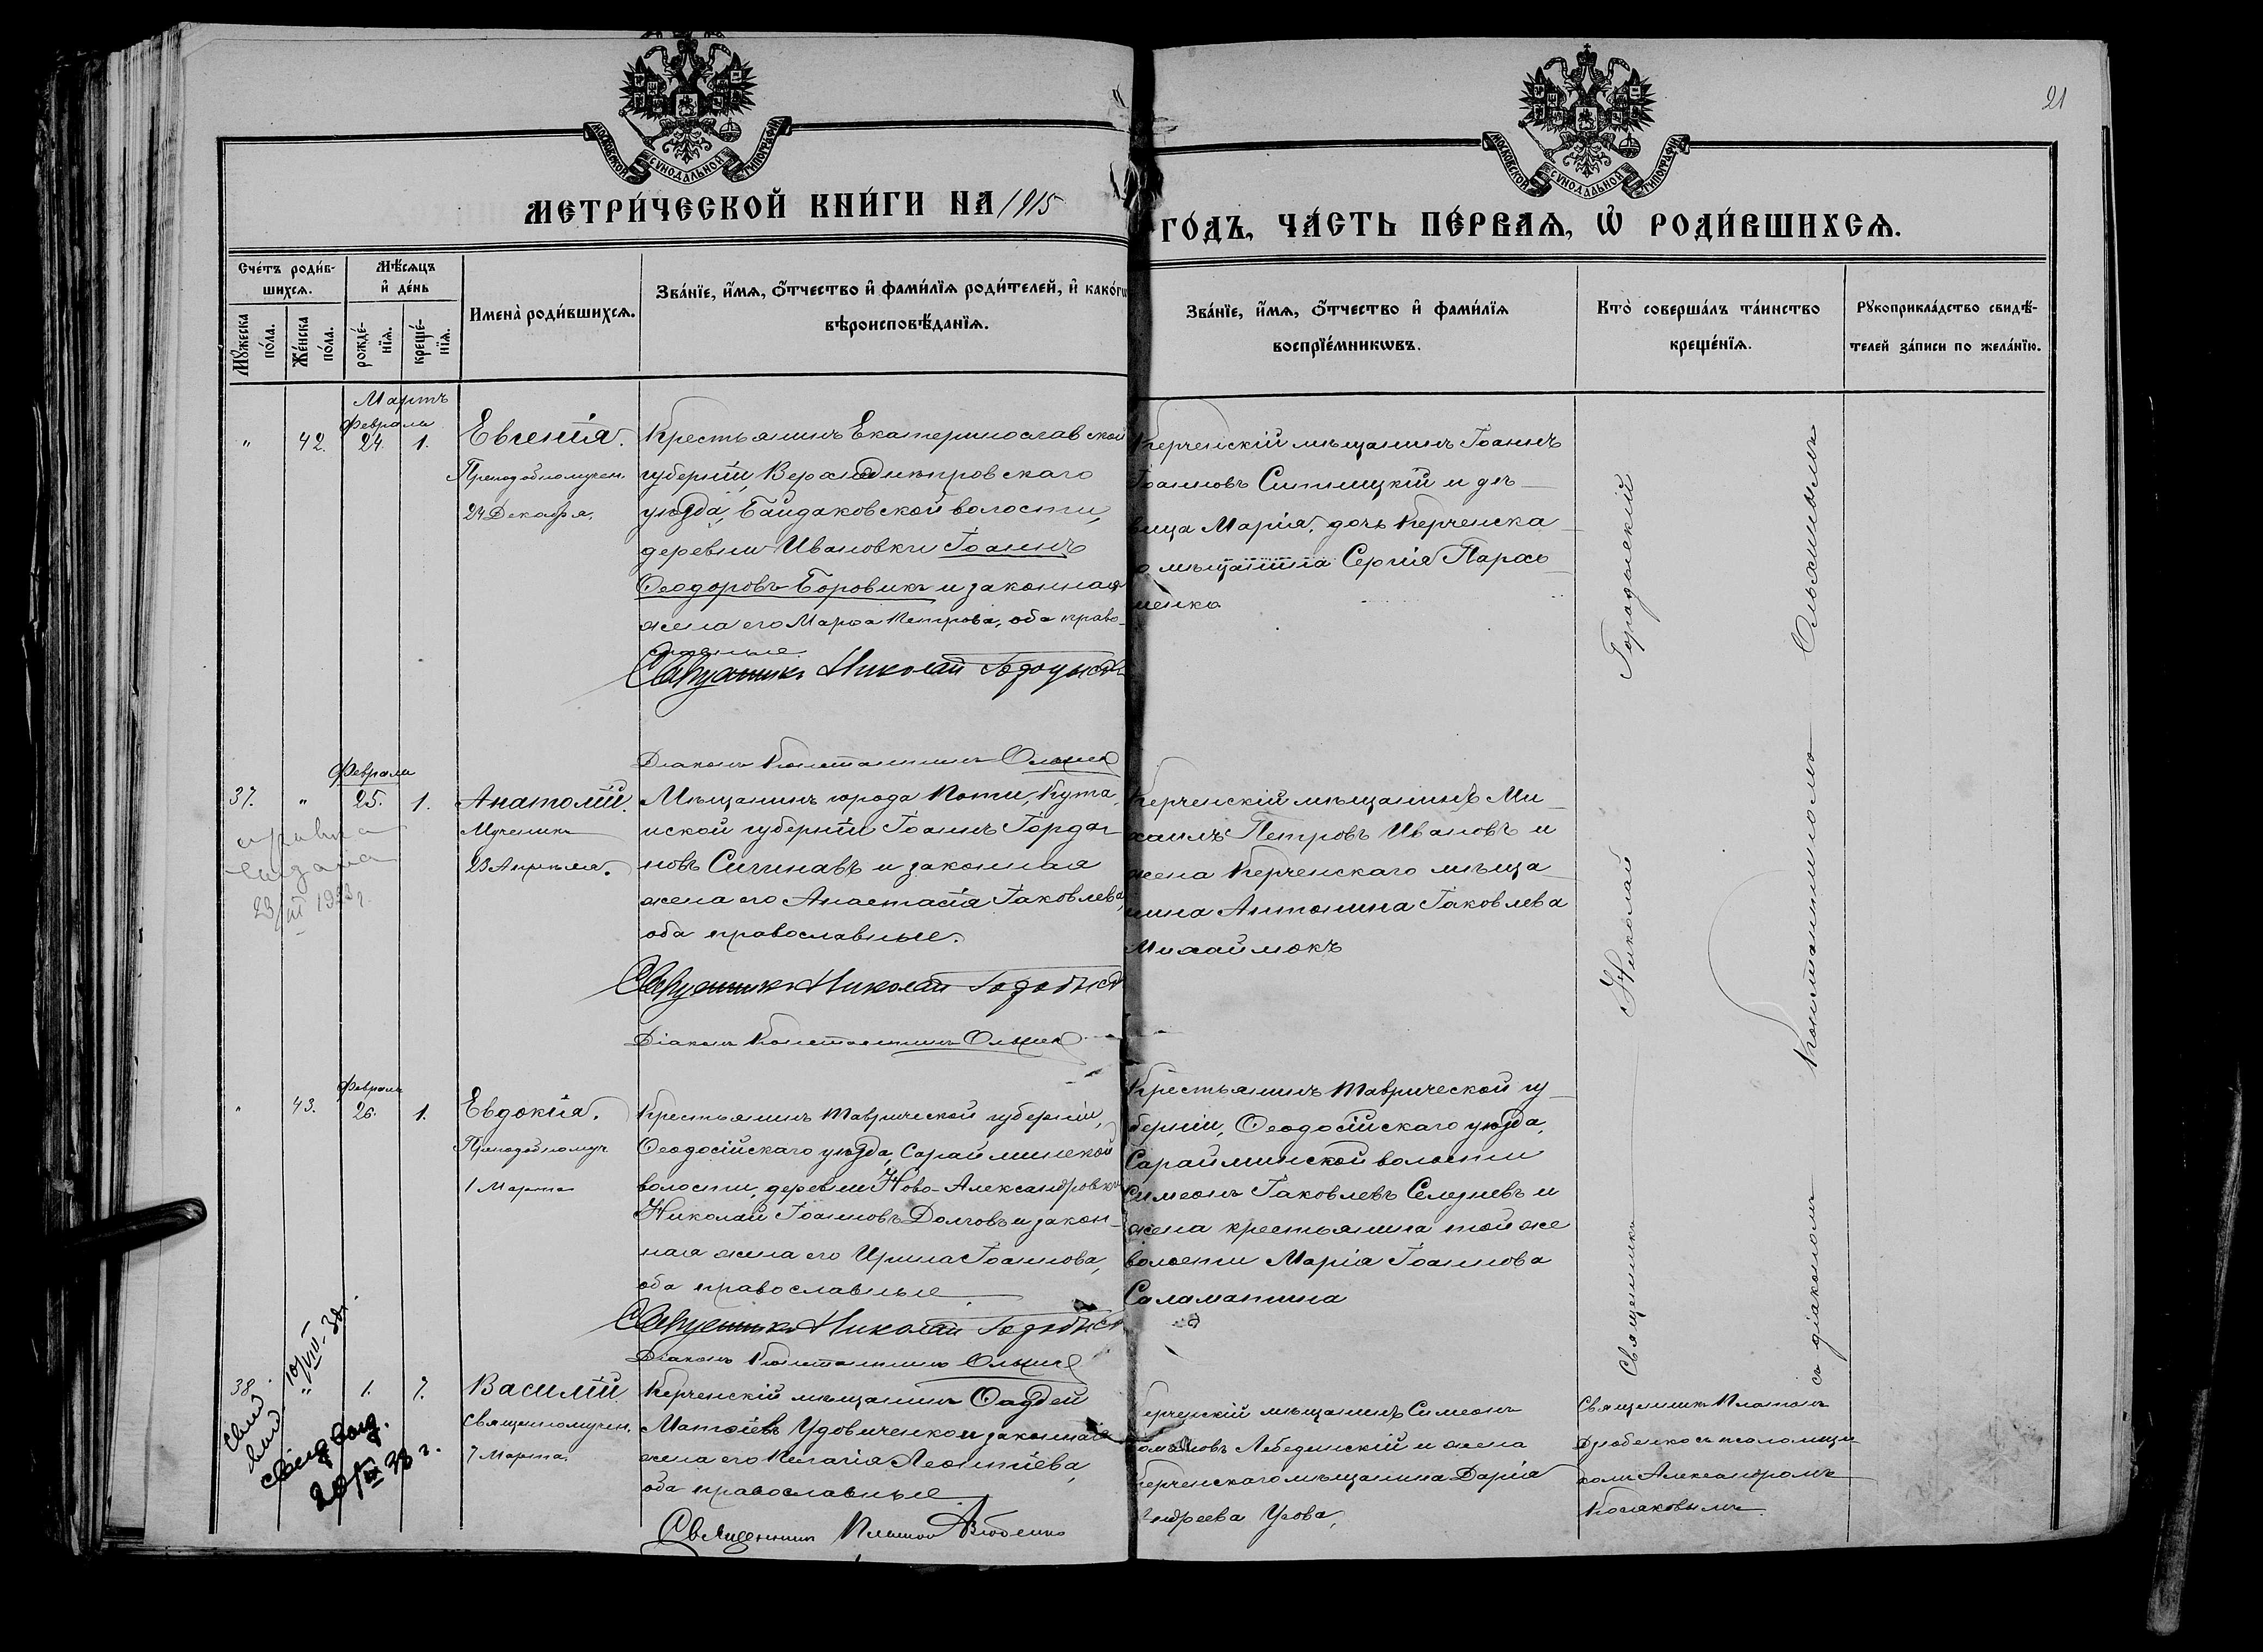 21
МОСКОВСКОЙ СУНОДАЛЬНОЙ ТИПОГРАФІИ
МОСКОВСКОЙ СУНОДАЛЬНОЙ ТИПОГРАФІИ
МЕТРИ́ЧЕСКОЙ КНИ́ГИ НА 1915
ГО́ДЪ, ЧА́СТЬ ПЕ́РВАѦ, Ѡ҆ РОДИ́ВШИХСѦ.
Сче́тъ роди́в-
шихсѧ.
Мꙋ́жеска по́ла.
Же́нска по́ла.
Мѣ́сѧцъ
и҆ де́нь
рожде́-
нїѧ.
креще́-
нїѧ.
Имена̀ роди́вшихсѧ.
Зва́нїе, и҆́мѧ, ѻ҆́тчество и҆ фами́лїѧ роди́телей, и҆ како́гѡ
вѣроисповѣ́данїѧ.
Зва́нїе, и҆́мѧ, ѻ҆́тчество и҆ фами́лїѧ
воспрїе́мникѡвъ.
Кто̀ соверша́лъ та́инство
креще́нїѧ.
Рꙋкоприкла́дство свидѣ́-
телей за́писи по жела́нїю.
Мартъ
Февраля
" 42. 24. 1.
Евгенія.
Преподобномучен.
24 Декабря.
Крестьянинъ Екатеринославской
губерніи, Верхнеднѣпровскаго
уѣзда, Байдаковской волости,
деревни Ивановки Іоаннъ
Ѳеодоровъ Боровикъ и законная
жена его Марѳа Петрова, оба право-
славные.
Священникъ Николай
Діаконъ Константинъ
Керченскій мѣщанинъ Іоаннъ
Іоанновъ Синицкій и дѣ-
вица Марія, дочь Керченска-
о мѣщанина Сергія Пархо-
менко
Февраля
37. " 25. 1.
справка
выдана
23/III 1923 г.
Анатолій.
Мученика
23 Апрѣля.
Мѣщанинъ города Поти, Кута-
иской губерніи Іоаннъ
новъ Сичинавъ и законная
жена его Анастасія Іаковлева,
оба православные.
Священникъ Николай
Діаконъ Константинъ
Керченскій мѣщанинъ Ми-
хаилъ Петровъ Ивановъ и
жена Керченскаго мѣща-
нина Антонина Іаковлева
Михаймокъ
Февраля
" 43. 26. 1.
Евдокія.
Преподобномуч.
1 Марта
Крестьянинъ Таврической губерніи,
Ѳеодосійскаго уѣзда, Сарайминской
волости, деревни Ново-Александровки
Николай Іоанновъ Долговъ и закон-
ная жена его Ирина Іоаннова,
оба православные
Священникъ Николай
Діаконъ Константинъ
Крестьянинъ Таврической гу-
берніи, Ѳеодосійскаго уѣзда,
Сарайминской волости
Симеонъ Іаковлевъ Селезневъ и
жена крестьянина той же
волости Марія Іоаннова
Саламатина
Священникъ Николай Городынскій
съ діакономъ Константиномъ
38. " 1. 7.
10/VIII-38г.
20/III 38 г.
Василій
Священномучен.
7 Марта.
Керченскій мѣщанинъ Ѳаддей
Матѳіевъ Удовиченко и законная
жена его Пелагія Леонтіева,
оба православные
Священникъ Платонъ
ерченскій мѣщанинъ Симеонъ
Лебединскій и жена
Керченскаго мѣщанина Дарія
Андреева Угова,
Священникъ Платонъ
съ псаломщи-
комъ Александромъ